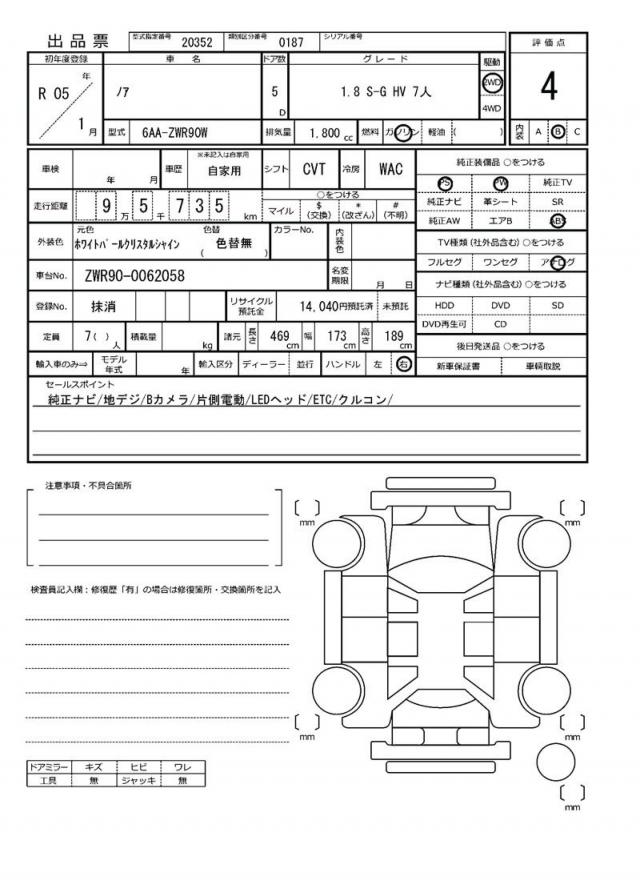 出品票 型式指定番号 20352 類別区分番号 0187 シリアル番号
評価点
初年度登録 車名 ドア数 グレード 駆動
R 05 年 1 月 ノア 5 D 1.8 S-G HV 7人 2WD 4WD 4
型式 6AA-ZWR90W 排気量 1,800 cc 燃料 ガソリン 軽油 ( ) 内装 A B C
車検 年 月 車歴 ※未記入は自家用 自家用 シフト CVT 冷房 WAC 純正装備品 ○をつける
PS PW 純正TV
走行距離 9 5 万 7 千 3 5 km ○をつける 純正ナビ 革シート SR
マイル $ (交換) * (改ざん) # (不明) 純正AW エアB ABS
外装色 元色 ホワイトパールクリスタルシャイン 色替 ( 色替無 ) カラーNo. 内装色 TV種類 (社外品含む) ○をつける
フルセグ ワンセグ アナログ
車台No. ZWR90-0062058 名変期限 月 日 ナビ種類 (社外品含む) ○をつける
登録No. 抹消 リサイクル預託金 14,040円預託済 未預託 HDD DVD SD
DVD再生可 CD
定員 7( ) 人 積載量 kg 諸元 長さ 469 cm 幅 173 cm 高さ 189 cm 後日発送品 ○をつける
輸入車のみ⇒ モデル年式 年 輸入区分 ディーラー 並行 ハンドル 左 右 新車保証書 車輌取説
セールスポイント
純正ナビ/地デジ/Bカメラ/片側電動/LEDヘッド/ETC/クルコン/
注意事項・不具合箇所
mm mm
検査員記入欄：修復歴「有」の場合は修復箇所・交換箇所を記入
mm mm
ドアミラー キズ ヒビ ワレ
工具 無 ジャッキ 無
mm